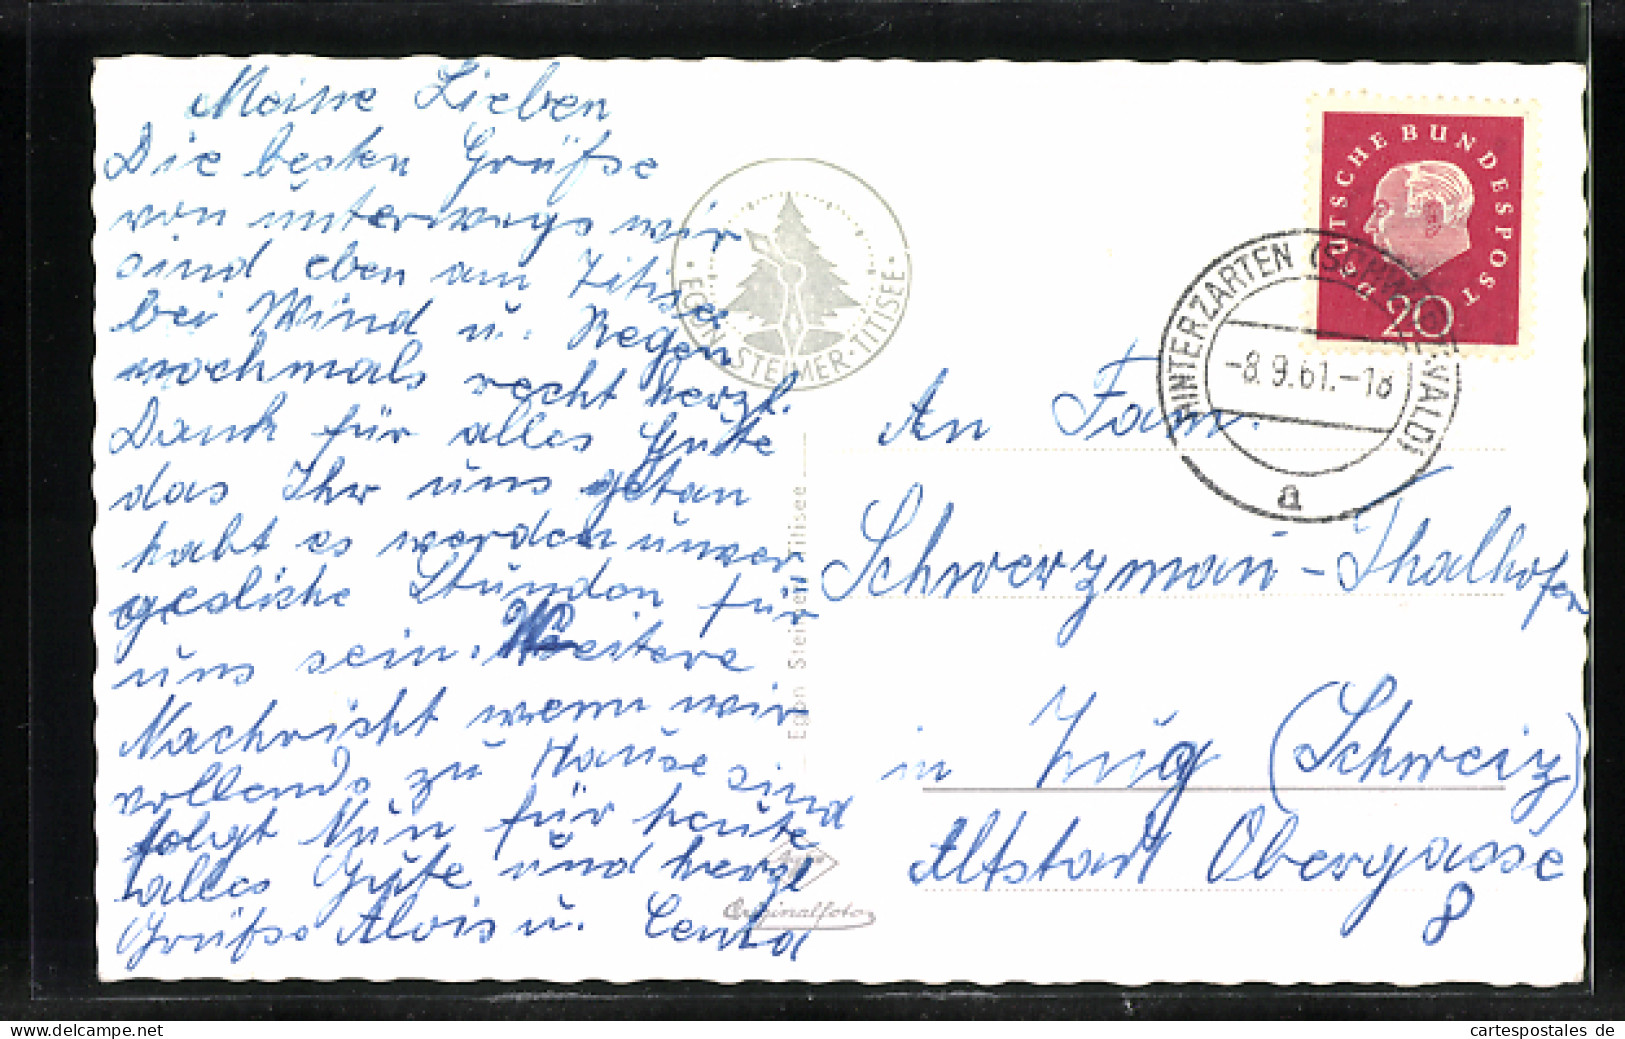 Meine Lieben
Die besten Grüße
von unterwegs wir
sind eben am Titisee
bei Wind u. Regen
nochmals recht herzl.
Dank für alles Gute
das Ihr uns getan
habt es werden unver
gesliche Stunden für
uns sein. Weitere
Nachricht wenn wir
vollends zu Hause sind
folgt Nun für heute
alles Gute und herzl
Grüße Alois u. Centa
EGON STEIMER · TITISEE
Egon Steimer, Titisee
Originalfoto
DEUTSCHE BUNDESPOST
20
HINTERZARTEN (SCHWARZWALD)
-8.9.61.-18
a
An Fam.
Schwerzmann - Thalhofer
in Zug (Schweiz)
Altstadt Obergasse
8
cartespostales de